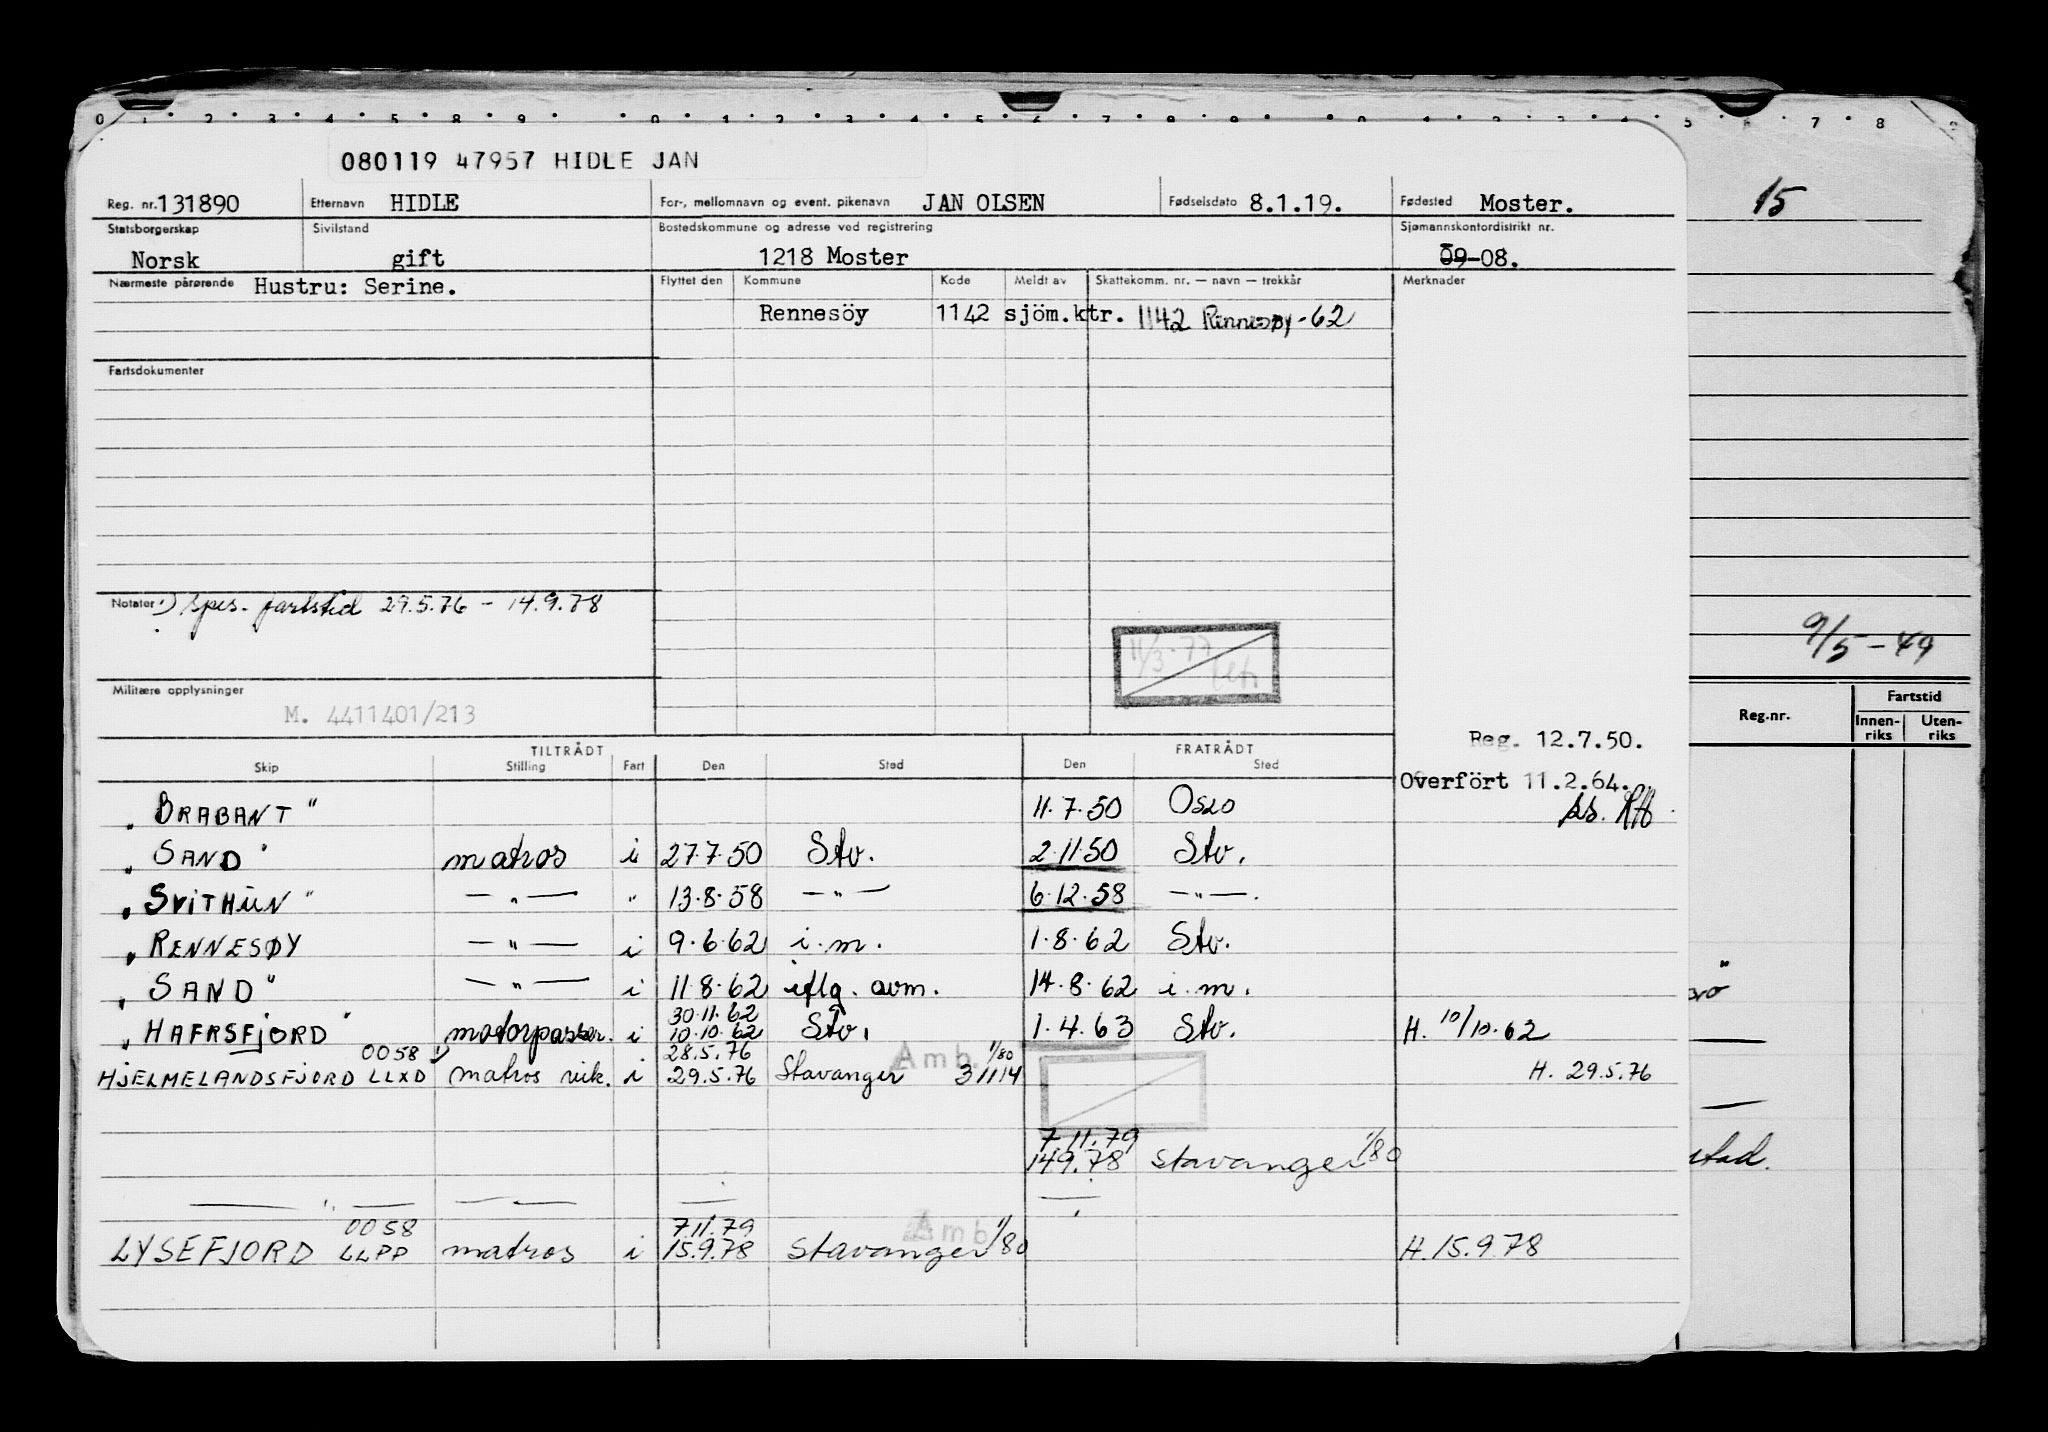 080119 47957 HIDLE JAN
Reg. nr. 131890 Etternavn HIDLE For-, mellomnavn og event. pikenavn JAN OLSEN Fødselsdato 8.1.19. Fødested Moster.
Statsborgerskap Sivilstand Bostedskommune og adresse ved registrering Sjømannskontordistrikt nr.
Norsk gift 1218 Moster 09-08.
Nærmeste pårørende Hustru: Serine. Flyttet den Kommune Kode Meldt av Skattekomm. nr. — navn — trekkår Merknader
Rennesöy 1142 sjöm.ktr. 1142 Rennesøy-62
Fartsdokumenter
Notater 1) spes. fartstid 29.5.76 - 14.9.78
11/3-77
Militære opplysninger
M. 4411401/213
Reg. 12.7.50.
Overfört 11.2.64.
TILTRÅDT FRATRÅDT
Skip Stilling Fart Den Sted Den Sted
„BRABANT" 11.7.50 Oslo
„SAND" matros i 27.7.50 Stv. 2.11.50 Stv.
„SVITHUN" — „ — " 13.8.58 — „ — 6.12.58 — „ —.
„RENNESØY — „ — i 9.6.62 i.m. 1.8.62 Stv.
„SAND" — „ — i 11.8.62 iflg. avm. 14.8.62 i.m.
30.11.62
„HAFRSFJORD" motorpasser. i 10.10.62 Stv. 1.4.63 Stv. H. 10/10.62
0058 1) 28.5.76 Amb. 1/80
HJELMELANDSFJORD LLXD matros vik. i 29.5.76 Stavanger 31114 H. 29.5.76
7.11.79
14.9.78 Stavanger 1/80
— „ — — „ — — —
0058 7.11.79 Amb 1/80
LYSEFJORD LLPP matros i 15.9.78 Stavanger H. 15.9.78
15
9/5-49
Reg.nr. Fartstid
Innen-riks Uten-riks